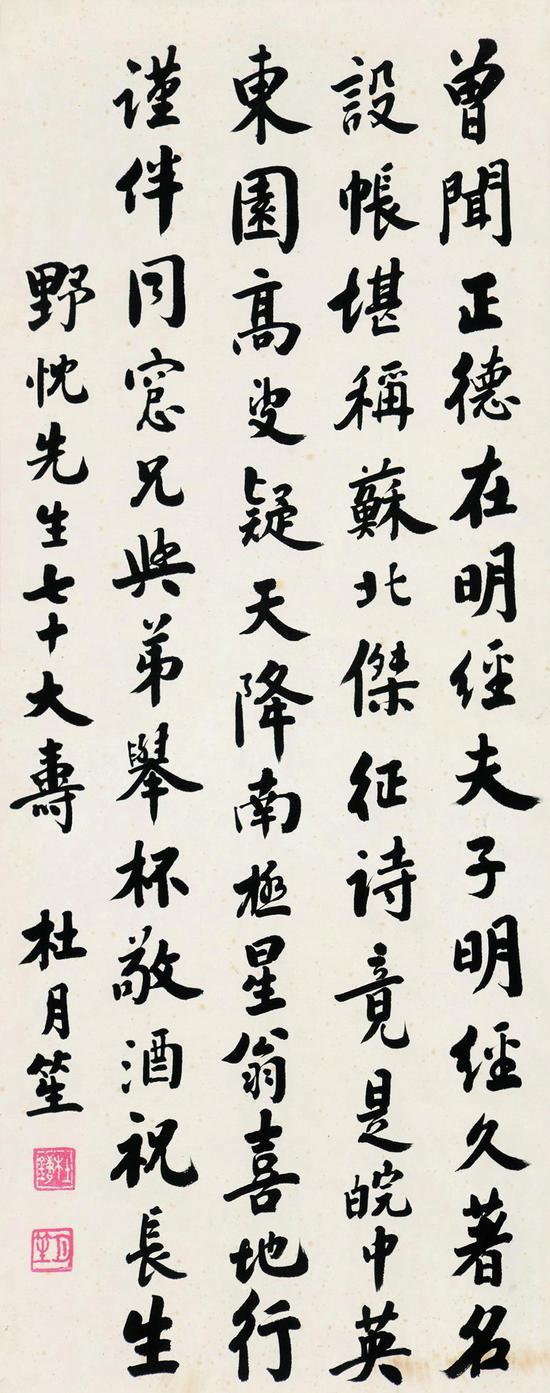 曾聞正德在明經夫子明經久著名
設帳堪稱蘇北傑征诗竟是皖中英
東園高叟疑天降南極星翁喜地行
謹伴同窓兄與弟舉杯敬酒祝長生
野忱先生七十大壽 杜月笙
杜鏞
月笙